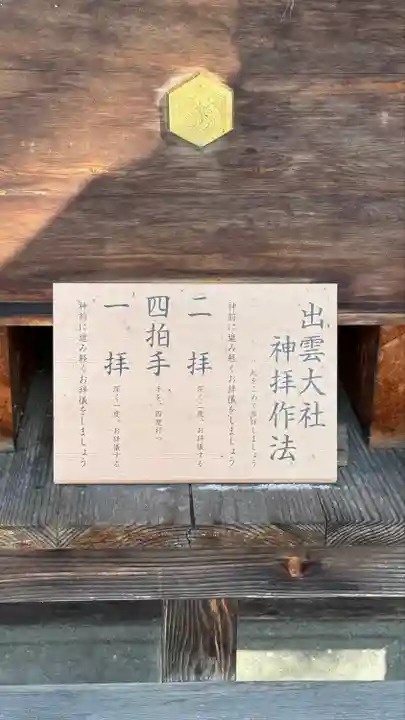 出雲大社
神拝作法
心をこめて参拝しましょう
神前に進み軽くお辞儀をしましょう
二拝
深く二度、お辞儀する
四拍手
手を、四度打つ
一拝
深く一度、お辞儀する
神前に進み軽くお辞儀をしましょう